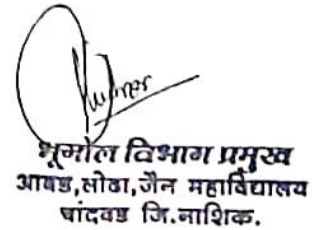 भूगोल विभाग प्रमुख
आबड,लोढा,जैन महाविद्यालय
चांदवड जि.नाशिक.